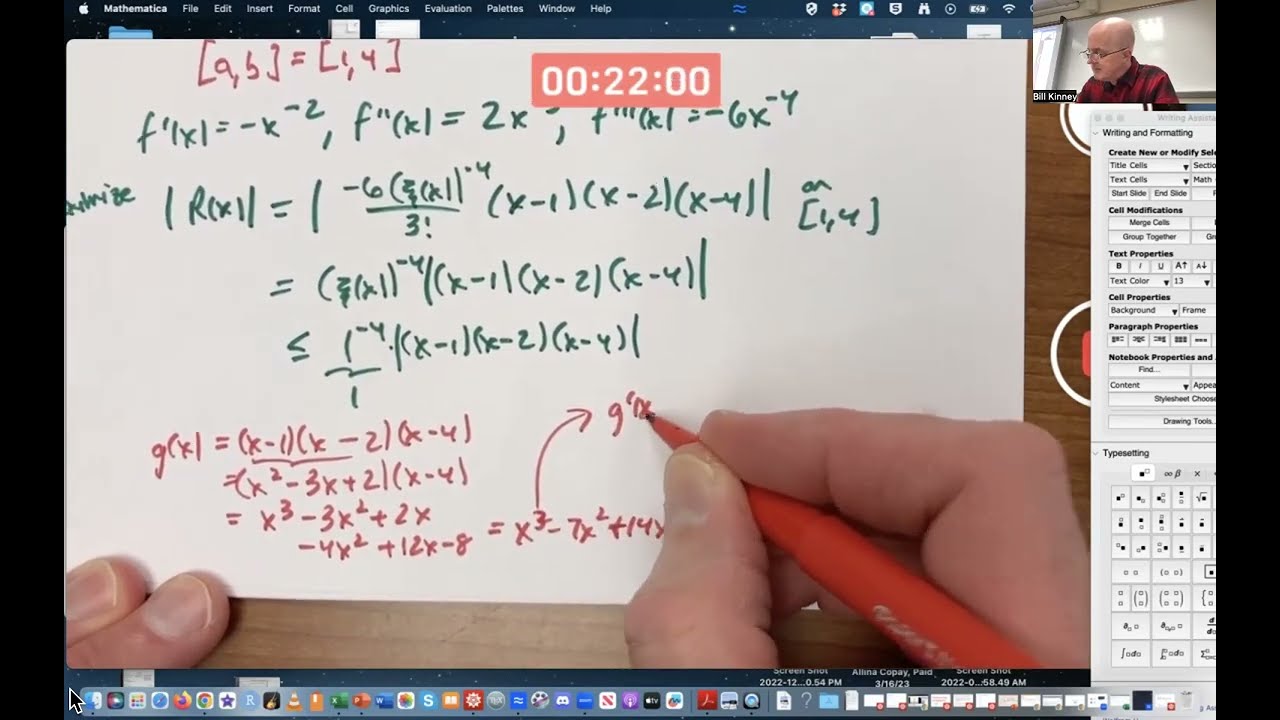 Mathematica File Edit Insert Format Cell Graphics Evaluation Palettes Window Help
[a,b] = [1,4]
00:22:00
Bill Kinney
f'(x) = -x^-2, f''(x) = 2x , f'''(x) = -6x^-4
|R(x)| = | -6(ξ(x))^-4 / 3! (x-1)(x-2)(x-4)| on [1,4]
= (ξ(x))^-4 |(x-1)(x-2)(x-4)|
≤ 1^-4 · |(x-1)(x-2)(x-4)|
1
g'(x
g(x) = (x-1)(x-2)(x-4)
= (x²-3x+2)(x-4)
= x³-3x²+2x
-4x²+12x-8 = x³-7x²+14x
Writing Assist
Writing and Formatting
Create New or Modify Sele
Title Cells Sectio
Text Cells Math
Start Slide End Slide
Cell Modifications
Merge Cells
Group Together
Text Properties
B I U A A
Text Color 13
Cell Properties
Background Frame
Paragraph Properties
Notebook Properties and
Font...
Content Appea
Stylesheet Choose
Drawing Tools...
Typesetting
Screen Shot
2022-12...0.54 PM
Allina Copay, Paid
3/16/23
Screen Shot
2022-0...8.49 AM